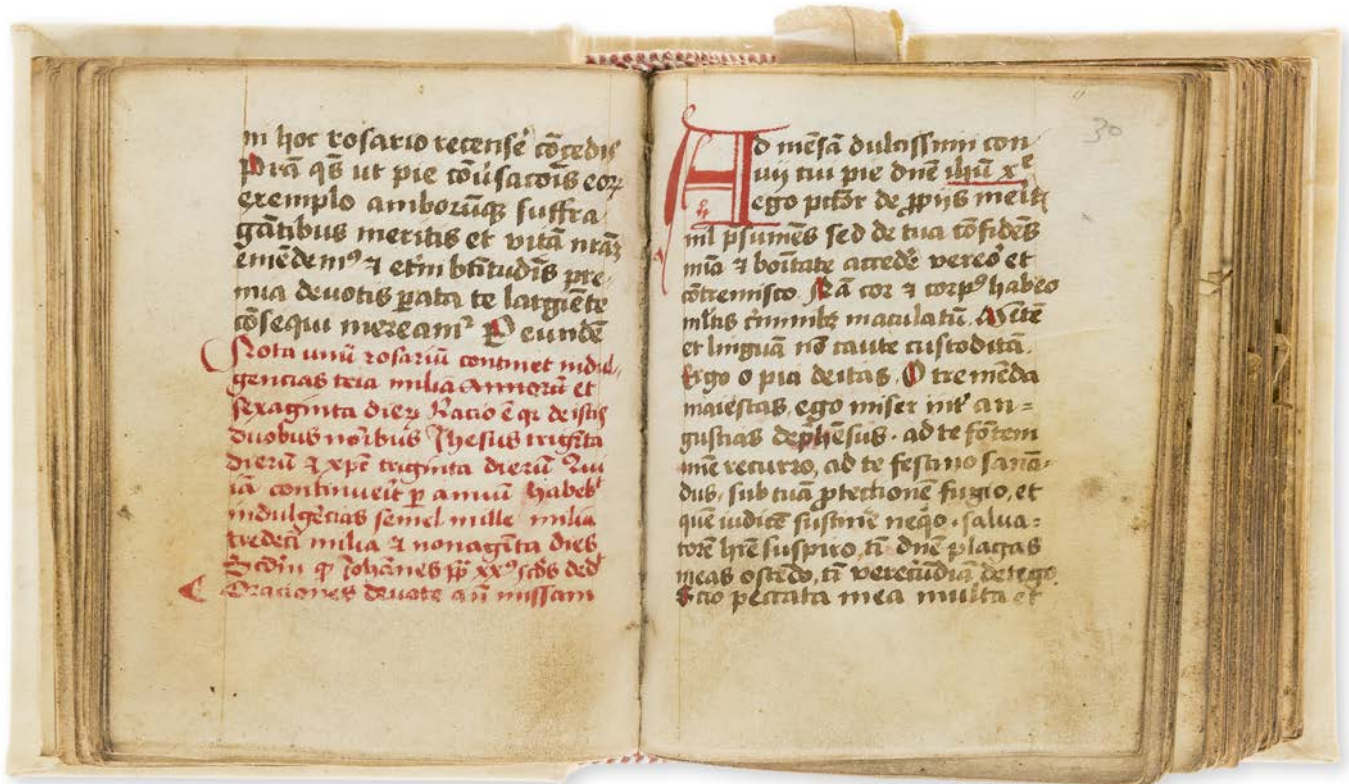 in hoc rosario recensē cōcedis
Prā qs ut pie cōu̓sacōis eoꝝ
exemplo amborūqꝫ suffra
gātibus meritis et vitā nrāꝫ
emēdemꝰ ⁊ etn̄i btītudīs pre-
mia devotis parata te largiēte
cōsequi mereamꝰ P eundē
Nota unū rosariū continet indul-
gencias tria milia Annorū et
sexaginta dierꝝ Racio ē qꝛ de istis
duobus noībus Jhesus trigīta
dierū ⁊ xp̄c triginta dierū Qui
iā continuet̄ ꝑ annuū habebt̄
indulgēcias semel mille milia
tredeci milia ⁊ nonagīta dies
Scdm̄ qꝫ Johānes pp̄ xxꝰ scd̄s ded̄
Oraciones devote añ missam
30
Ad mēsā dulcissimi con
vivij tui pie dnē ihū xᵉ
ego pctōr de ꝓpijs meritꝭ
nil p̄sumēs sed de tua cōfidēs
mīa ⁊ boītate accedē vereoꝛ et
cōtremisco. Nā cor ⁊ corpꝰ habeo
ml̄tis cīminibꝫ maculatū. Mētē
et linguā nō caute custoditā.
Ergo o pia deitas. O tremēda
maiestas. ego miser int̄ an=
gustias dep̄hēsus. ad te fōtem
mīe recurro, ad te festino sanā-
dus, sub tuā ꝓtectionē fugio, et
quē iudicē sustinē neqo. salva=
torē hr̄e suspiro, tī dnē plagas
meas ostēdo, tī verecūdiā detego.
Scio peccata mea multa et